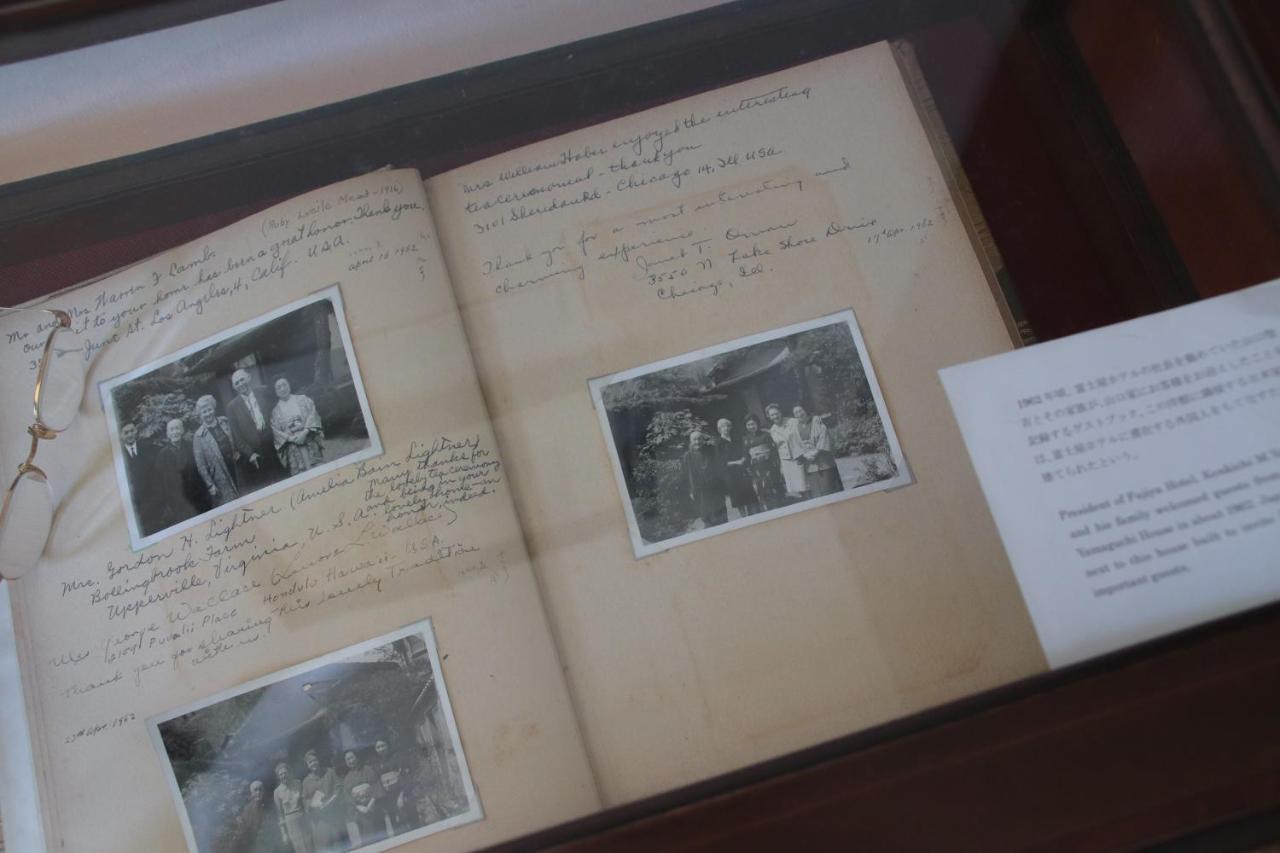 (Ruby Lucile Mead - 1916)
Mr and Mrs Warren F Lamb.
Our visit to your home has been a great honor. Thank you.
June St. Los Angeles, 4, Calif. USA.
April 16 1962
Mrs. Gordon H. Lightner (Amelia Bain Lightner)
Bollingbrook Farm
Upperville, Virginia, U.S.A.
Many thanks for
the lovely tea ceremony
and being in your
lovely home - an
honor, indeed.
Mrs George Wallace (Lenore L Wallace)
Place Honolulu Hawaii - USA.
Thank you for sharing this lovely tradition
with us.
27th Apr. 1962
Mrs William Haber enjoyed the interesting
tea ceremonial - thank you
3101 Sheridan Rd - Chicago 14, Ill USA.
Thank you for a most interesting and
charming experience.
Janet T.
3550 N Lake Shore Drive
Chicago, Ill.
17th Apr. 1962
1962 年頃、富士屋ホテルの社長を勤めていた山口
おとその家族が、山口家にお客様をお迎えしたことを
記録するゲストブック。この洋館に隣接する日本家
は、富士屋ホテルに滞在する外国人をもてなすた
建てられたという。
President of Fujiya Hotel, Kenkichi M. Ya
and his family welcomed guests from
Yamaguchi House in about 1962.
next to this house built to invite
important guests.